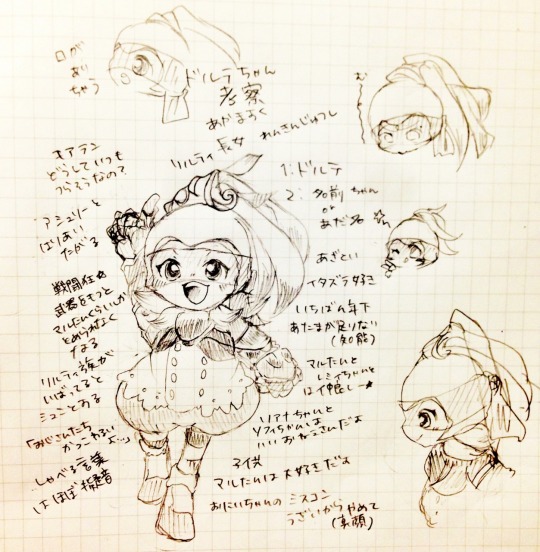 口が
あり
ちゃう
ドルテちゃん
考察
あかまろく
リルティ 長女
れんきんじゅつし
む〜
キアラン
どうしていつも
つらそうなの?
アシュリーと
はりあい
たがる
戦闘狂☆
武器をもつと
マルたんくらいしか
とめられなく
なる
リルティ族が
いばってると
シュンとなる
「おじさんたち
かっこわるい
よ…」
しゃべる言葉
はほぼ擬音
1: ドルテ
2: 名前ちゃん
or
あだ名
あざとい
イタズラ好き
いちばん年下
あたまが足りない
(知能)
マルたんと
レミィちゃんと
はイ中良し〜★
ソアナちゃんと
ソフィちゃんは
いいおねえさんだよ
子供
マルたんは大好きだよ
おにいちゃんのミスコン
うざいからやめて
(真顔)